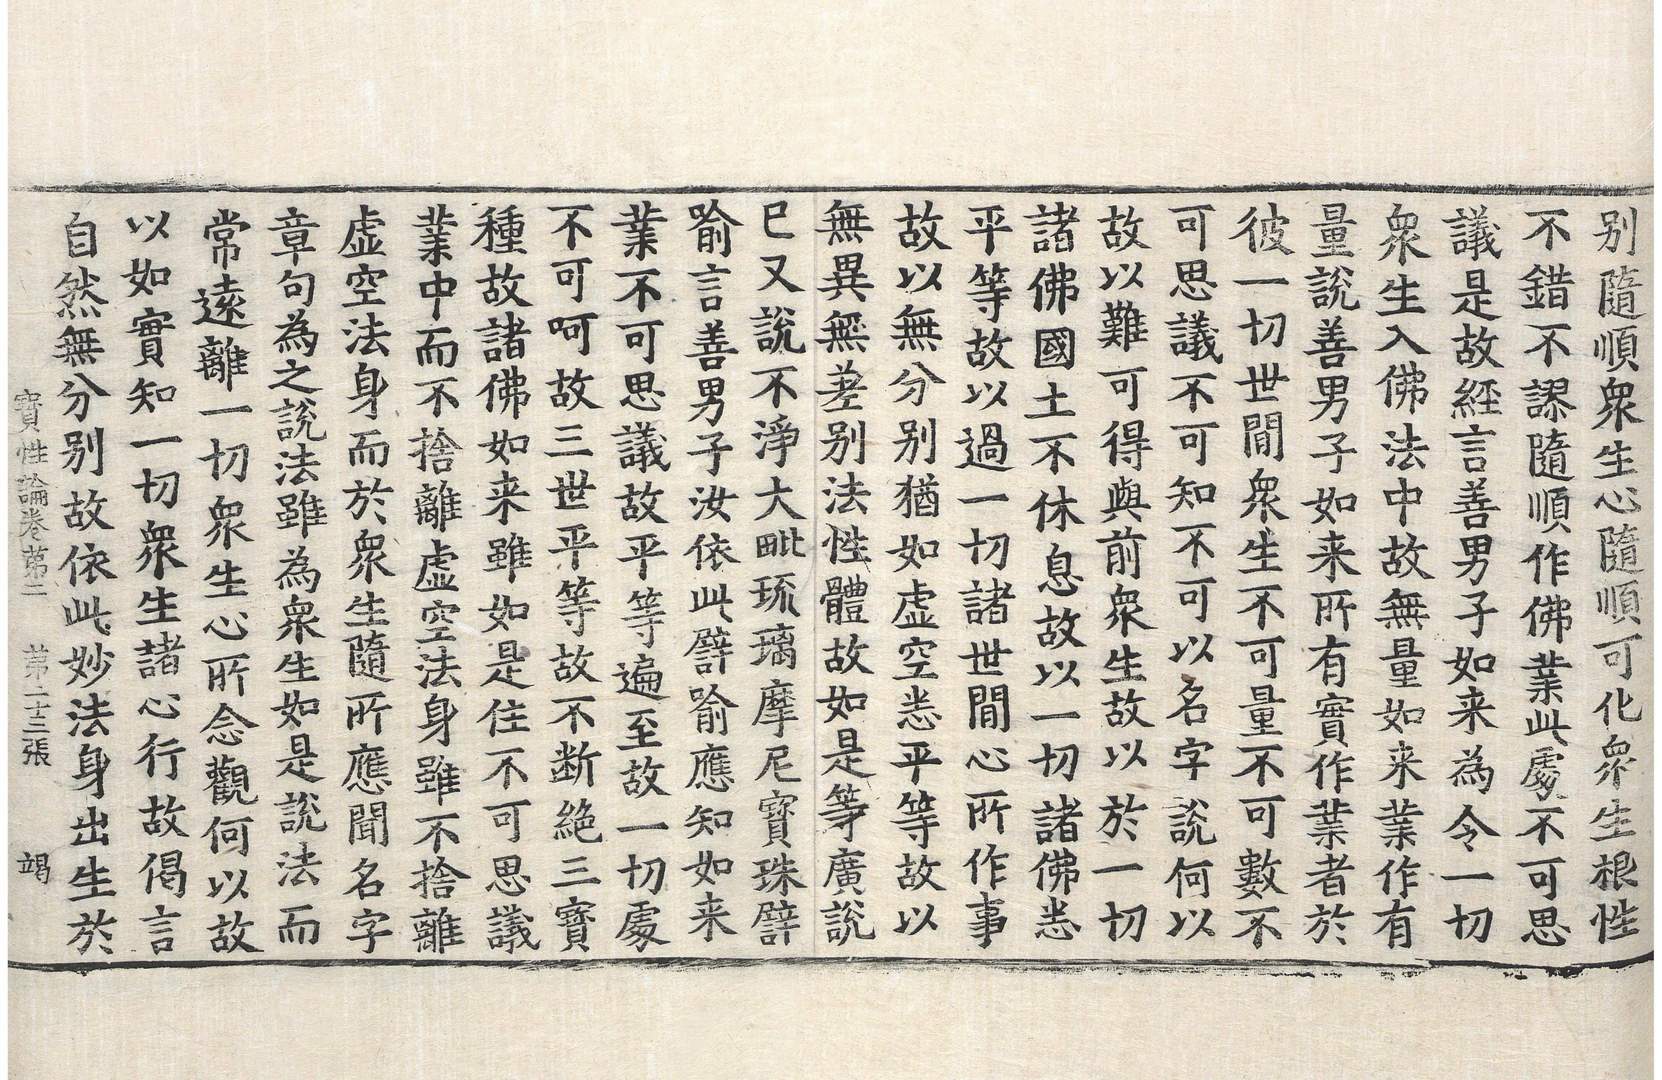 别隨順衆生心隨順可化衆生根性
不錯不謬隨順作佛業此處不可思
議是故經言善男子如来為令一切
衆生入佛法中故無量如来業作有
量說善男子如来所有實作業者於
彼一切世間衆生不可量不可數不
可思議不可知不可以名字說何以
故以難可得與前衆生故以於一切
諸佛國土不休息故以一切諸佛悉
平等故以過一切諸世間心所作事
故以無分别猶如虛空悉平等故以
無異無差别法性體故如是等廣說
已又說不淨大毗琉璃摩尼寶珠譬
喻言善男子汝依此譬喻應知如来
業不可思議故平等遍至故一切處
不可呵故三世平等故不断絕三寶
種故諸佛如来雖如是住不可思議
業中而不捨離虛空法身雖不捨離
虛空法身而於衆生隨所應聞名字
章句為之說法雖為衆生如是說法而
常遠離一切衆生心所念觀何以故
以如實知一切衆生諸心行故偈言
自然無分别故依此妙法身出生於
寶性論卷第二 第二十三張 竭